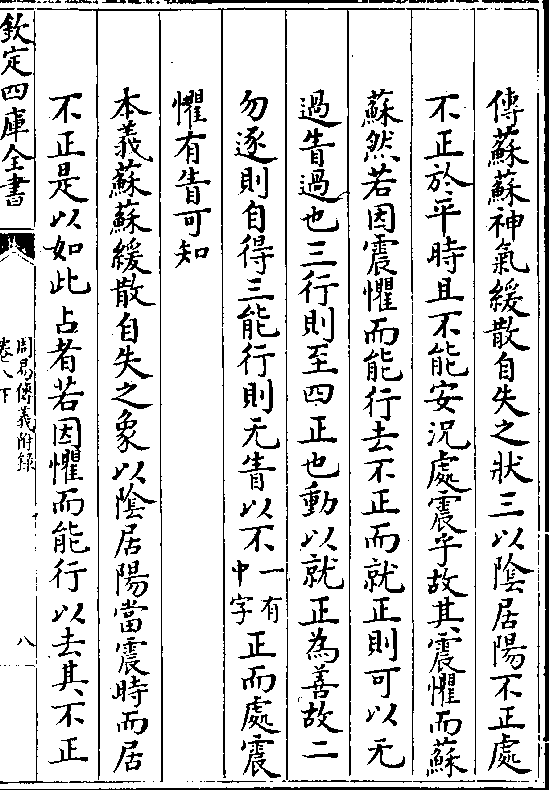 傳蘇蘇神氣緩散自失之狀三以隂居陽不正處
不正於平時且不能安況處震乎故其震懼而蘇
蘇然若因震懼而能行去不正而就正則可以无
過眚過也三行則至四正也動以就正為善故二
勿逐則自得三能行則无眚以不一有中字正而處震
懼有眚可知
本義蘇蘇緩散自失之象以隂居陽當震時而居
不正是以如此占者若因懼而能行以去其不正
欽定四庫全書
周易傳義附錄
卷八下
八